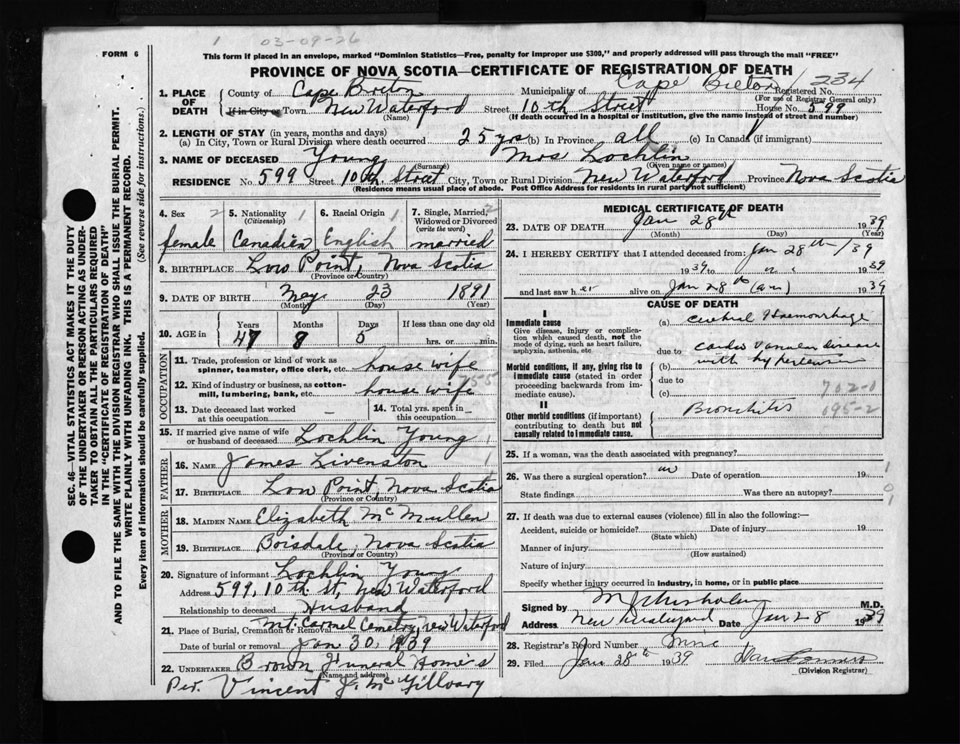 1 03-09-26
FORM 6
This form if placed in an envelope, marked "Dominion Statistics—Free, penalty for improper use $300," and properly addressed will pass through the mail "FREE"
PROVINCE OF NOVA SCOTIA—CERTIFICATE OF REGISTRATION OF DEATH
SEC. 46—VITAL STATISTICS ACT MAKES IT THE DUTY
OF THE UNDERTAKER OR PERSON ACTING AS UNDER-
TAKER TO OBTAIN ALL THE PARTICULARS REQUIRED
IN THE "CERTIFICATE OF REGISTRATION OF DEATH"
AND TO FILE THE SAME WITH THE DIVISION REGISTRAR WHO SHALL ISSUE THE BURIAL PERMIT.
WRITE PLAINLY WITH UNFADING INK. THIS IS A PERMANENT RECORD.
Every item of information should be carefully supplied. (See reverse side for instructions.)
1. PLACE OF DEATH County of Cape Breton Municipality of Cape Breton Registered No. 234
(For use of Registrar General only)
If in City or Town New Waterford Street 10th Street House No. 599
(Name) (If death occurred in a hospital or institution, give the name instead of street and number)
2. LENGTH OF STAY (in years, months and days)
(a) In City, Town or Rural Division where death occurred 25 yrs (b) in Province all (c) in Canada (if immigrant)
3. NAME OF DECEASED Young Mrs Lochlin
(Surname) (Given name or names)
RESIDENCE No. 599 Street 10th Street City, Town or Rural Division New Waterford Province Nova Scotia
(Residence means usual place of abode. Post Office Address for residents in rural part not sufficient)
4. Sex 2 5. Nationality 1 6. Racial Origin 1 7. Single, Married, 2
(Citizenship) Widowed or Divorced
(write the word)
female Canadien English married
8. BIRTHPLACE Low Point, Nova Scotia
(Province or Country)
9. DATE OF BIRTH May 23 1891
(Month) (Day) (Year)
10. AGE in Years Months Days If less than one day old
47 8 5 hrs. or min.
OCCUPATION
11. Trade, profession or kind of work as
spinner, teamster, office clerk, etc. house wife
12. Kind of industry or business, as cotton-
mill, lumbering, bank, etc. house wife
13. Date deceased last worked
at this occupation
14. Total yrs. spent in
this occupation
15. If married give name of wife
or husband of deceased Lochlin Young
FATHER
16. NAME James Livenston
17. BIRTHPLACE Low Point, Nova Scotia
(Province or Country)
MOTHER
18. MAIDEN NAME Elizabeth McMullen
19. BIRTHPLACE Boisdale, Nova Scotia
(Province or Country)
20. Signature of informant Lochlin Young
Address 599, 10th St, New Waterford
Relationship to deceased Husband
21. Place of Burial, Cremation or Removal Mt. Carmel Cemetry, New Waterford
Date of burial or removal Jan 30, 1939
22. UNDERTAKER Brown Funeral Home's
(Name and address)
Per. Vincent J. McGillvary
MEDICAL CERTIFICATE OF DEATH
23. DATE OF DEATH Jan 28th 1939
(Month) (Day) (Year)
24. I HEREBY CERTIFY that I attended deceased from: Jan 28th /39
1939 to 1939
and last saw her alive on Jan 28th (am) 1939
CAUSE OF DEATH
I
Immediate cause
Give disease, injury or complica-
tion which caused death, not the
mode of dying, such as heart failure,
asphyxia, asthenia, etc.
(a) cerebral Haemorrhage
due to cardio vascular disease
Morbid conditions, if any, giving rise to
immediate cause (stated in order
proceeding backwards from im-
mediate cause).
(b) with hypertension
due to
(c) 702-0
II
Other morbid conditions (if important)
contributing to death but not
causally related to immediate cause.
Bronchitis 195-2
25. If a woman, was the death associated with pregnancy?
26. Was there a surgical operation? no Date of operation 19
State findings Was there an autopsy?
27. If death was due to external causes (violence) fill in also the following:—
Accident, suicide or homicide? Date of injury 19
(State which)
Manner of injury
(How sustained)
Nature of injury
Specify whether injury occurred in industry, in home, or in public place
Signed by M. J. Chisholm M.D.
Address New Waterford Date Jan 28 1939
28. Registrar's Record Number Nine
29. Filed Jan 28th 1939
(Division Registrar)